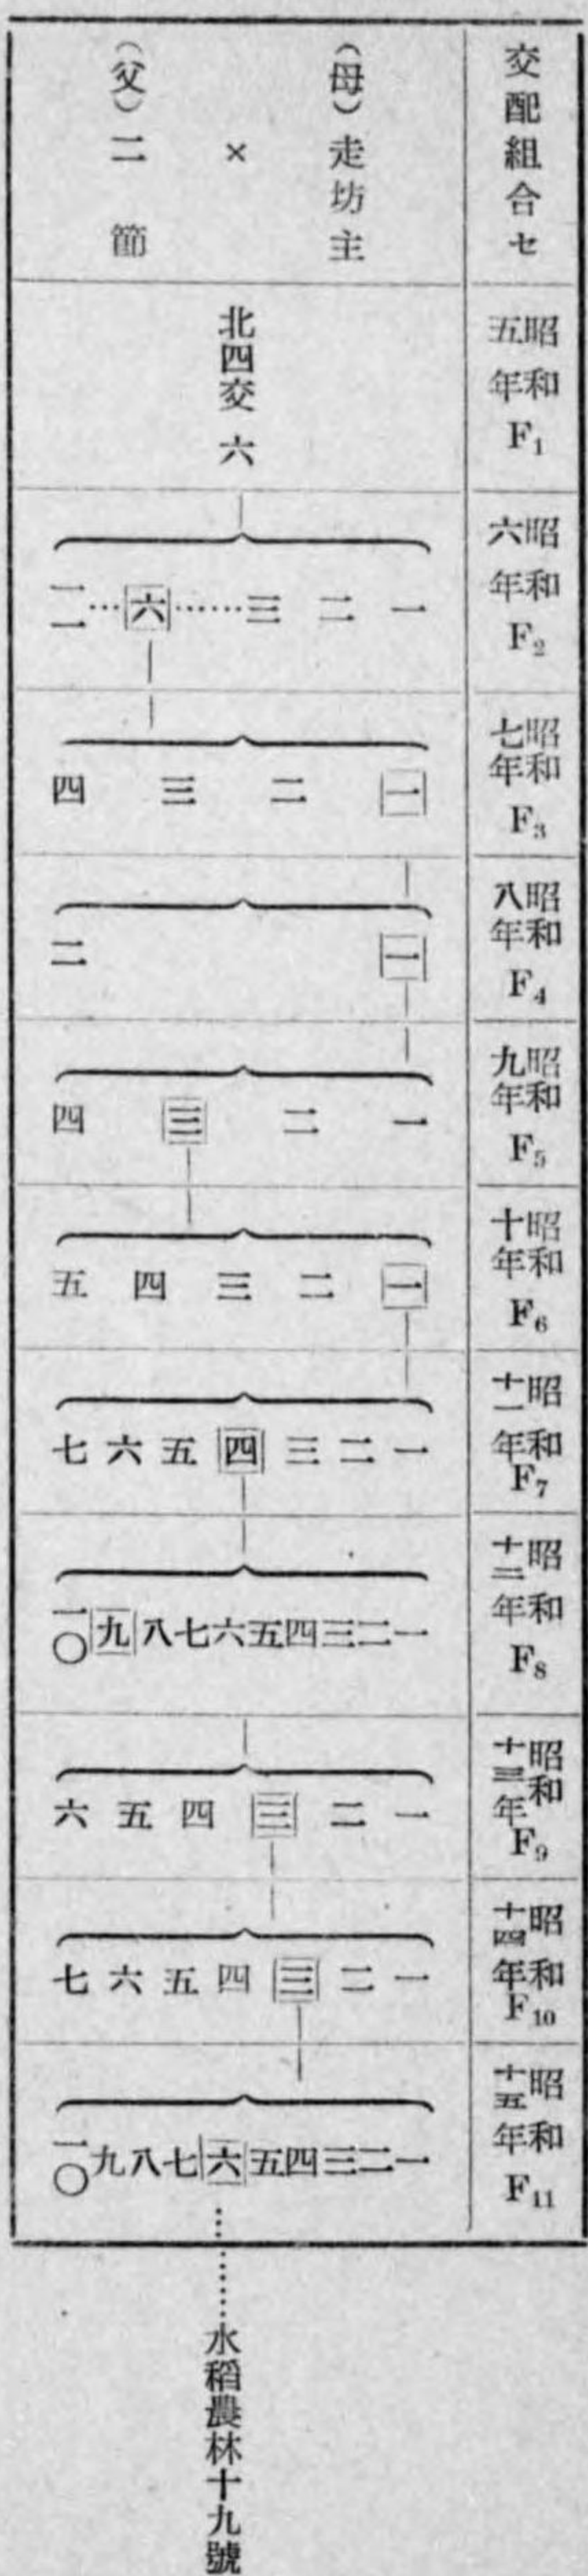 交配組合セ
(母)走坊主
×
(父)二節
昭和五年 F₁
北四交六
昭和六年 F₂
一 二 三……六…一一
昭和七年 F₃
一 二 三 四
昭和八年 F₄
一 二
昭和九年 F₅
一 二 三 四
昭和十年 F₆
一 二 三 四 五
昭和十一年 F₇
一 二 三 四 五 六 七
昭和十二年 F₈
一 二 三 四 五 六 七 八 九 一〇
昭和十三年 F₉
一 二 三 四 五 六
昭和十四年 F₁₀
一 二 三 四 五 六 七
昭和十五年 F₁₁
一 二 三 四 五 六 七 八 九 一〇
水稻農林十九號